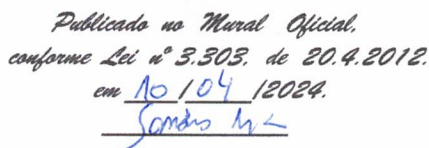 Publicado no Mural Oficial,
conforme Lei nº 3.303, de 20.4.2012.
em 10 / 04 /2024.